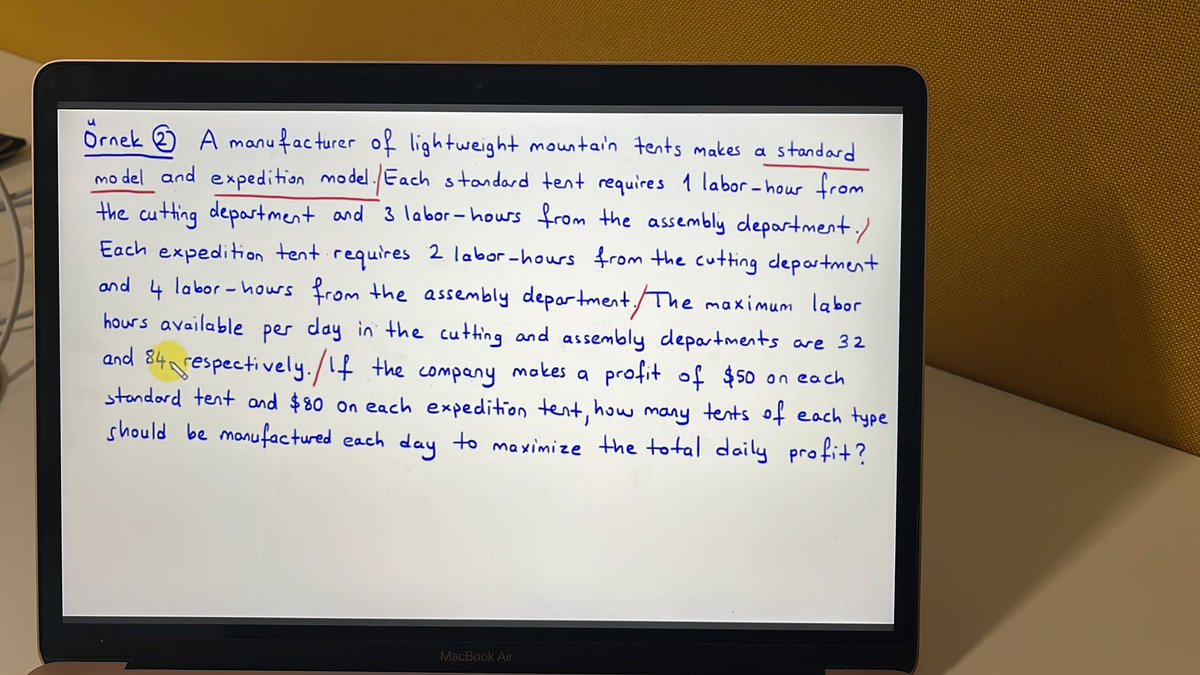 Örnek ② A manufacturer of lightweight mountain tents makes a standard
model and expedition model. Each standard tent requires 1 labor-hour from
the cutting department and 3 labor-hours from the assembly department.
Each expedition tent requires 2 labor-hours from the cutting department
and 4 labor-hours from the assembly department. The maximum labor
hours available per day in the cutting and assembly departments are 32
and 84 respectively. If the company makes a profit of $50 on each
standard tent and $80 on each expedition tent, how many tents of each type
should be manufactured each day to maximize the total daily profit?
MacBook Air